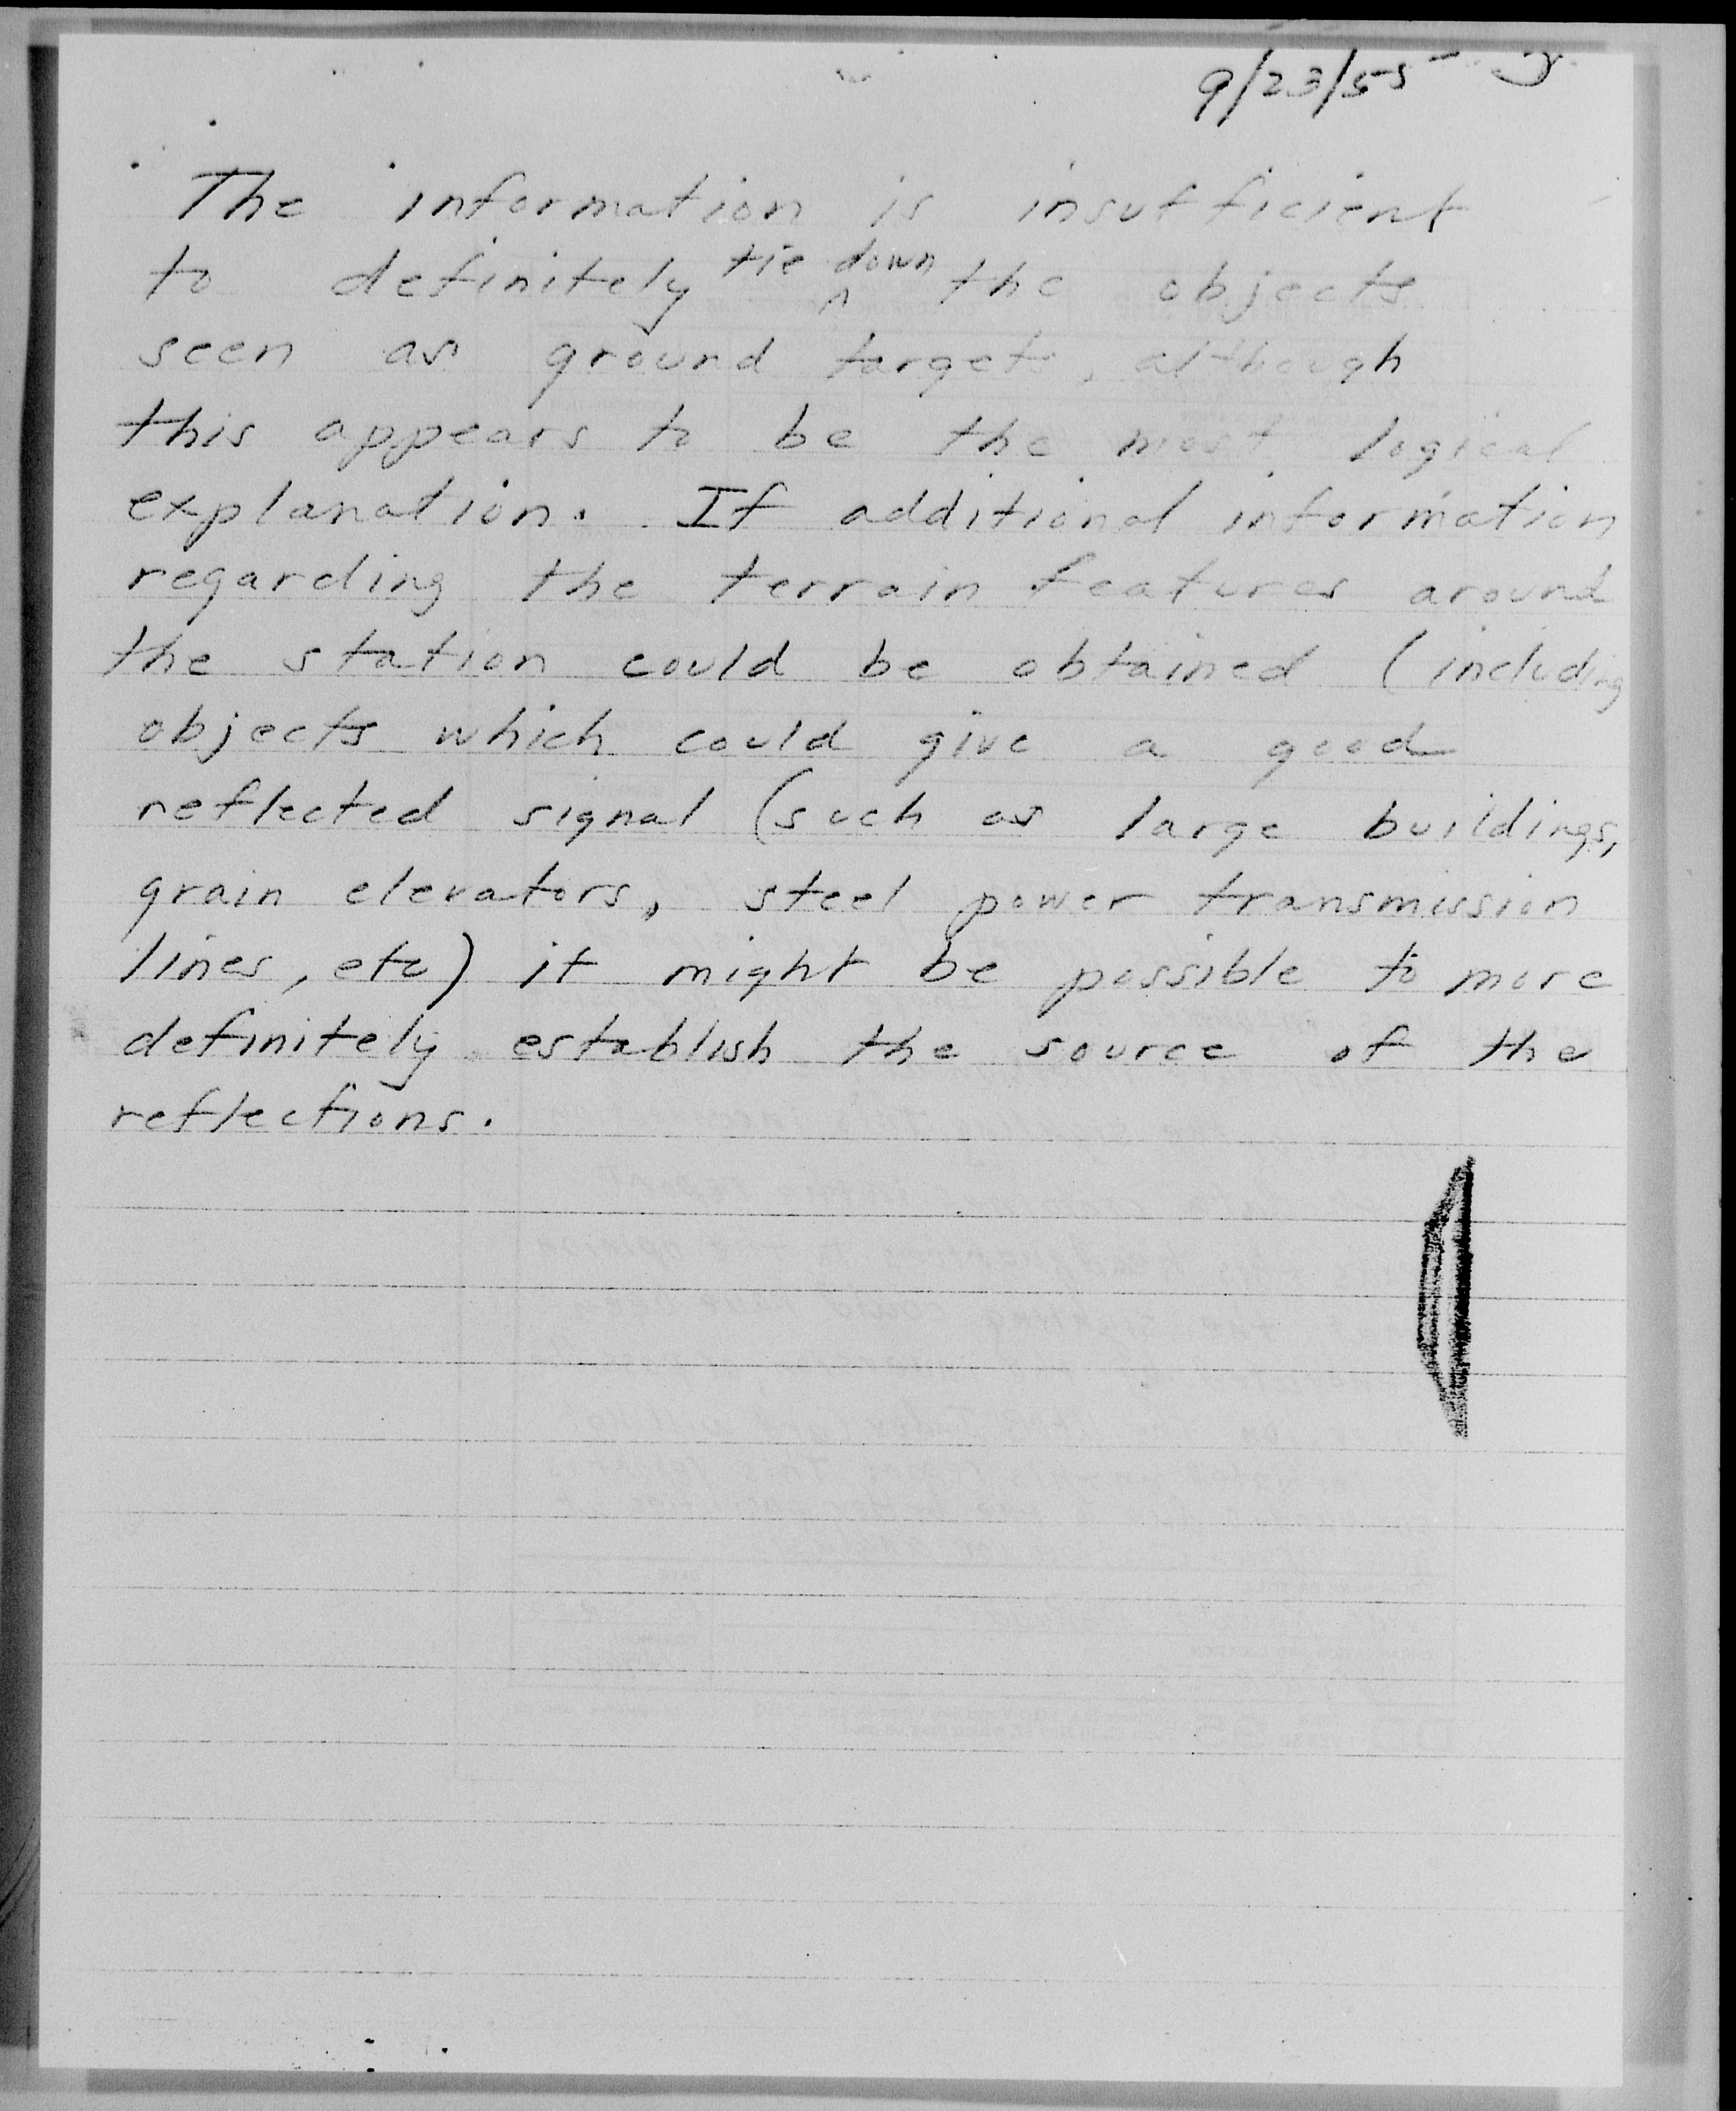 9/23/55
The information is insufficient
to definitely tie down the objects
seen as ground targets, although
this appears to be the most logical
explanation. If additional information
regarding the terrain features around
the station could be obtained (including
objects which could give a good
reflected signal (such as large buildings,
grain elevators, steel power transmission
lines, etc) it might be possible to more
definitely establish the source of the
reflections.